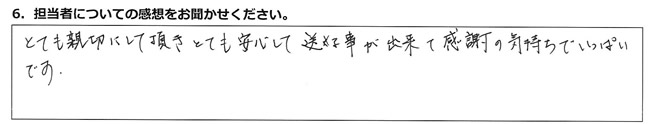 6. 担当者についての感想をお聞かせください。
とても親切にして頂きとても安心して送る事が出来て感謝の気持ちでいっぱい
です.